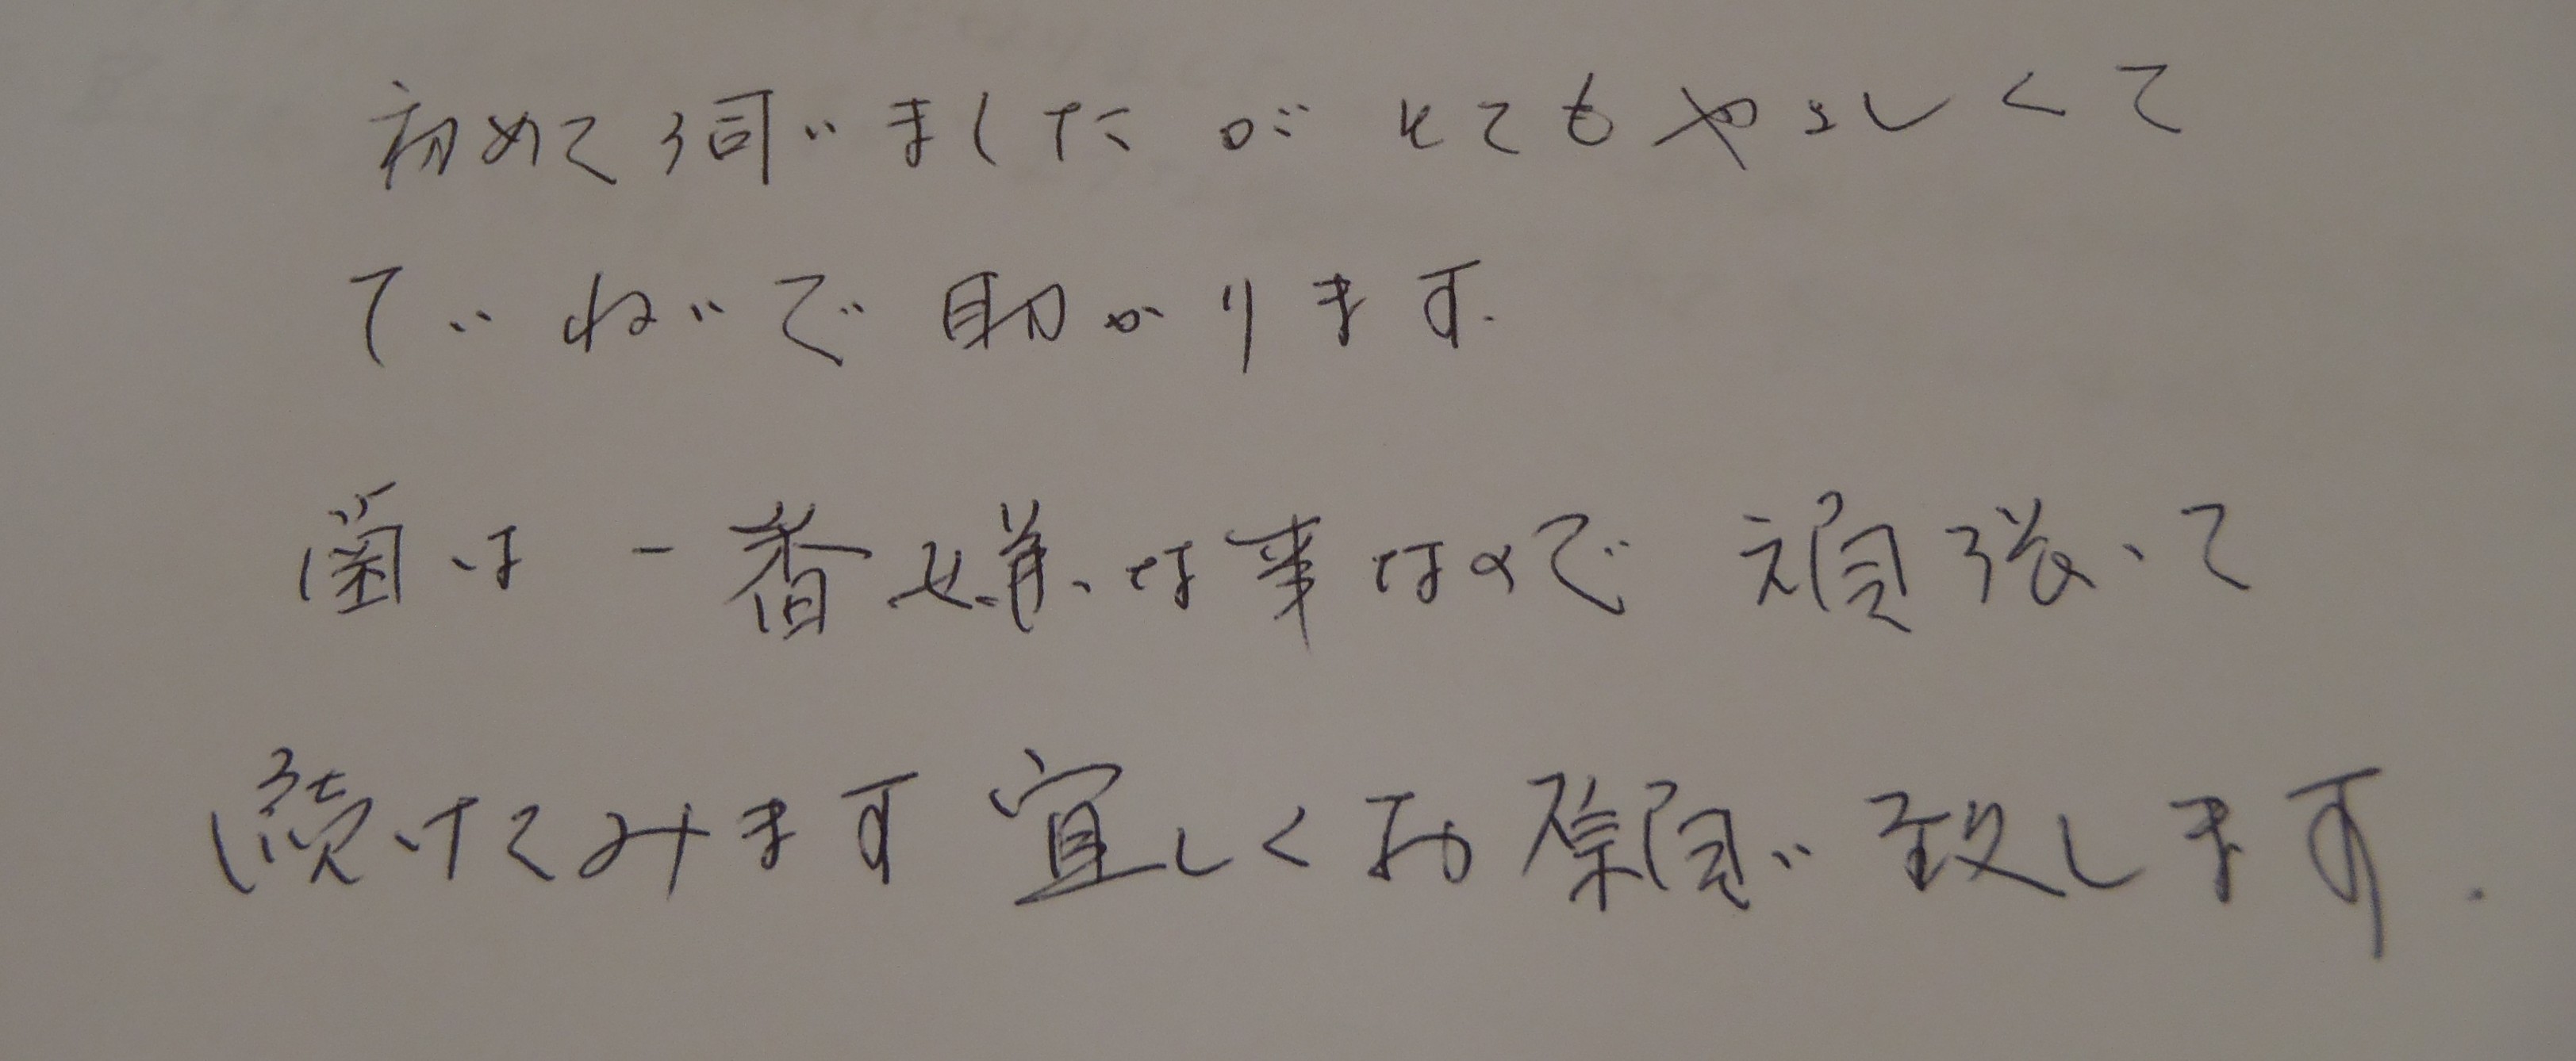 初めて伺いましたがとてもやさしくて
ていねいで助かります.
歯は一番嫌な事なので頑張って
続けてみます宜しくお願い致します.